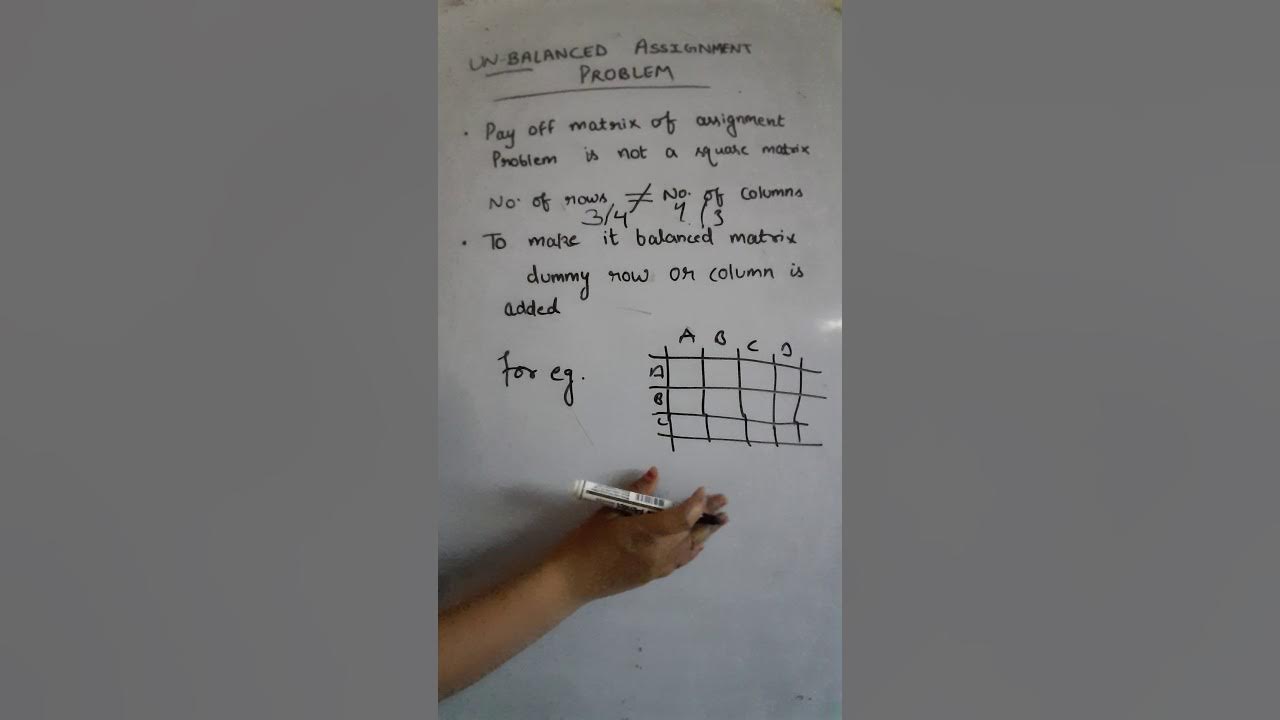 UN-BALANCED ASSIGNMENT
PROBLEM
• Pay off matrix of assignment
Problem is not a square matrix
No. of rows ≠ No. of columns
3/4 4/3
• To make it balanced matrix
dummy row or column is
added
For eg.
A B C D
A
B
C